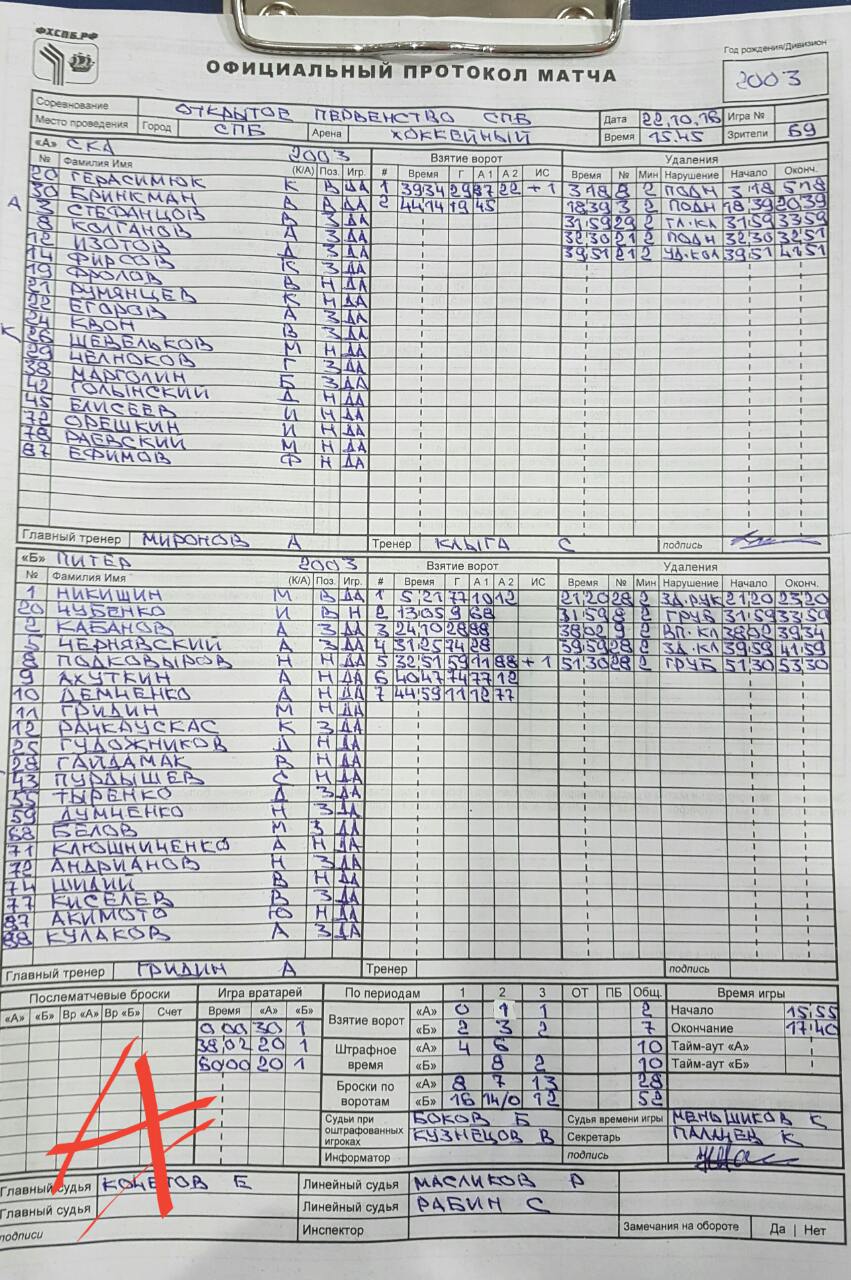 ФХСПБ.РФ
ОФИЦИАЛЬНЫЙ ПРОТОКОЛ МАТЧА
Год рождения/Дивизион
2003
Соревнование ОТКРЫТОЕ ПЕРВЕНСТВО СПБ Дата 22.10.16 Игра №
Место проведения Город СПБ Арена ХОККЕЙНЫЙ Время 15.45 Зрители 69
«А» СКА 2003 Взятие ворот Удаления
№ Фамилия Имя (К/А) Поз. Игр. # Время Г А 1 А 2 ИС Время № Мин Нарушение Начало Оконч.
20 ГЕРАСИМЮК К В ДА 1 39 34 29 87 22 +1 3 18 8 2 ПОДН 3 18 5 18
30 БРИНКМАН В В ДА 2 44 14 19 45 18 39 3 2 ПОДН 18 39 20 39
А 3 СТЕФАНЦОВ В З ДА 31 59 29 2 ГЛ.КА 31 59 33 59
8 КОЛГАНОВ А З ДА 32 30 21 2 ПОДН 32 30 32 51
12 ИЗОТОВ Д З ДА 39 51 21 2 УД.КОЛ 39 51 41 51
14 ФИРСОВ К З ДА
19 ФРОЛОВ В Н ДА
21 РУМЯНЦЕВ К Н ДА
22 ЕГОРОВ А З ДА
24 КВОН В З ДА
К 26 ШЕВЕЛЬКОВ М Н ДА
29 ЧЕЛНОКОВ Г З ДА
38 МАРГОЛИН Б З ДА
42 ГОЛЫНСКИЙ Д Н ДА
45 ЕЛИСЕЕВ И Н ДА
72 ОРЕШКИН И Н ДА
78 РАЕВСКИЙ М Н ДА
87 ЕФИМОВ Ф Н ДА
Главный тренер МИРОНОВ А Тренер КЛЫГА С подпись
«Б» ПИТЕР 2003 Взятие ворот Удаления
№ Фамилия Имя (К/А) Поз. Игр. # Время Г А 1 А 2 ИС Время № Мин Нарушение Начало Оконч.
1 НИКИШИН М В ДА 1 5 21 77 10 12 21 20 28 2 ЗД.РУК 21 20 23 20
20 ЧУБЕНКО И В Н 2 13 05 9 68 31 59 8 2 ГРУБ 31 59 33 59
2 КАБАНОВ А З ДА 3 24 10 28 88 38 02 9 2 ВП.КЛ 38 02 39 34
5 ЧЕРНЯВСКИЙ А З ДА 4 31 25 74 28 39 59 28 2 ЗД.КЛ 39 59 41 59
8 ПОДКОВЫРОВ Н Н ДА 5 32 51 59 11 88 +1 51 30 28 2 ГРУБ 51 30 53 30
9 АХУТКИН А Н ДА 6 40 47 74 77 12
10 ДЕМЧЕНКО А Н ДА 7 44 59 11 12 77
11 ГРИДИН М Н ДА
12 РАЧКАУСКАС К З ДА
25 ГУДОЖНИКОВ Д Н ДА
28 ГАЙДАМАК В Н ДА
43 ПУРДЫШЕВ С Н ДА
55 ТЫРЕНКО Д З ДА
59 ДУМЧЕНКО Н З ДА
68 БЕЛОВ М З ДА
71 КЛЮШНИЧЕНКО А Н ДА
72 АНДРИАНОВ Н З ДА
74 ШИДИЙ В Н ДА
77 КИСЕЛЕВ В З ДА
87 АКИМОТО Ю Н ДА
88 КУЛАКОВ А З ДА
Главный тренер ГРИДИН А Тренер подпись
Послематчевые броски Игра вратарей По периодам 1 2 3 ОТ ПБ Общ. Время игры
«А» «Б» Вр «А» Вр «Б» Счет Время «А» «Б» Взятие ворот «А» 0 1 1 2 Начало 15 55
0 00 30 1 «Б» 2 3 2 7 Окончание 17 40
38 02 20 1 Штрафное время «А» 4 6 10 Тайм-аут «А»
60 00 20 1 «Б» 8 2 10 Тайм-аут «Б»
Броски по воротам «А» 8 7 13 28
«Б» 16 14/0 12 52
А
Судьи при оштрафованных игроках БОКОВ Б Судья времени игры МЕНЬШИКОВ К
КУЗНЕЦОВ В Секретарь ПАЛАЦЕВ К
Информатор подпись
Главный судья КОЧЕТОВ Е Линейный судья МАСЛИКОВ Р
Главный судья Линейный судья РАБИН С
подписи Инспектор Замечания на обороте Да | Нет